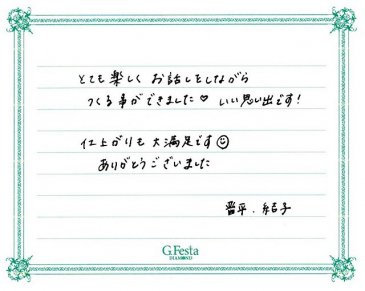 とても楽しく お話しをしながら
つくる事ができました♡ いい思い出です!
仕上がりも 大満足です☺
ありがとうございました
晋平. 結子
G.Festa
DIAMOND